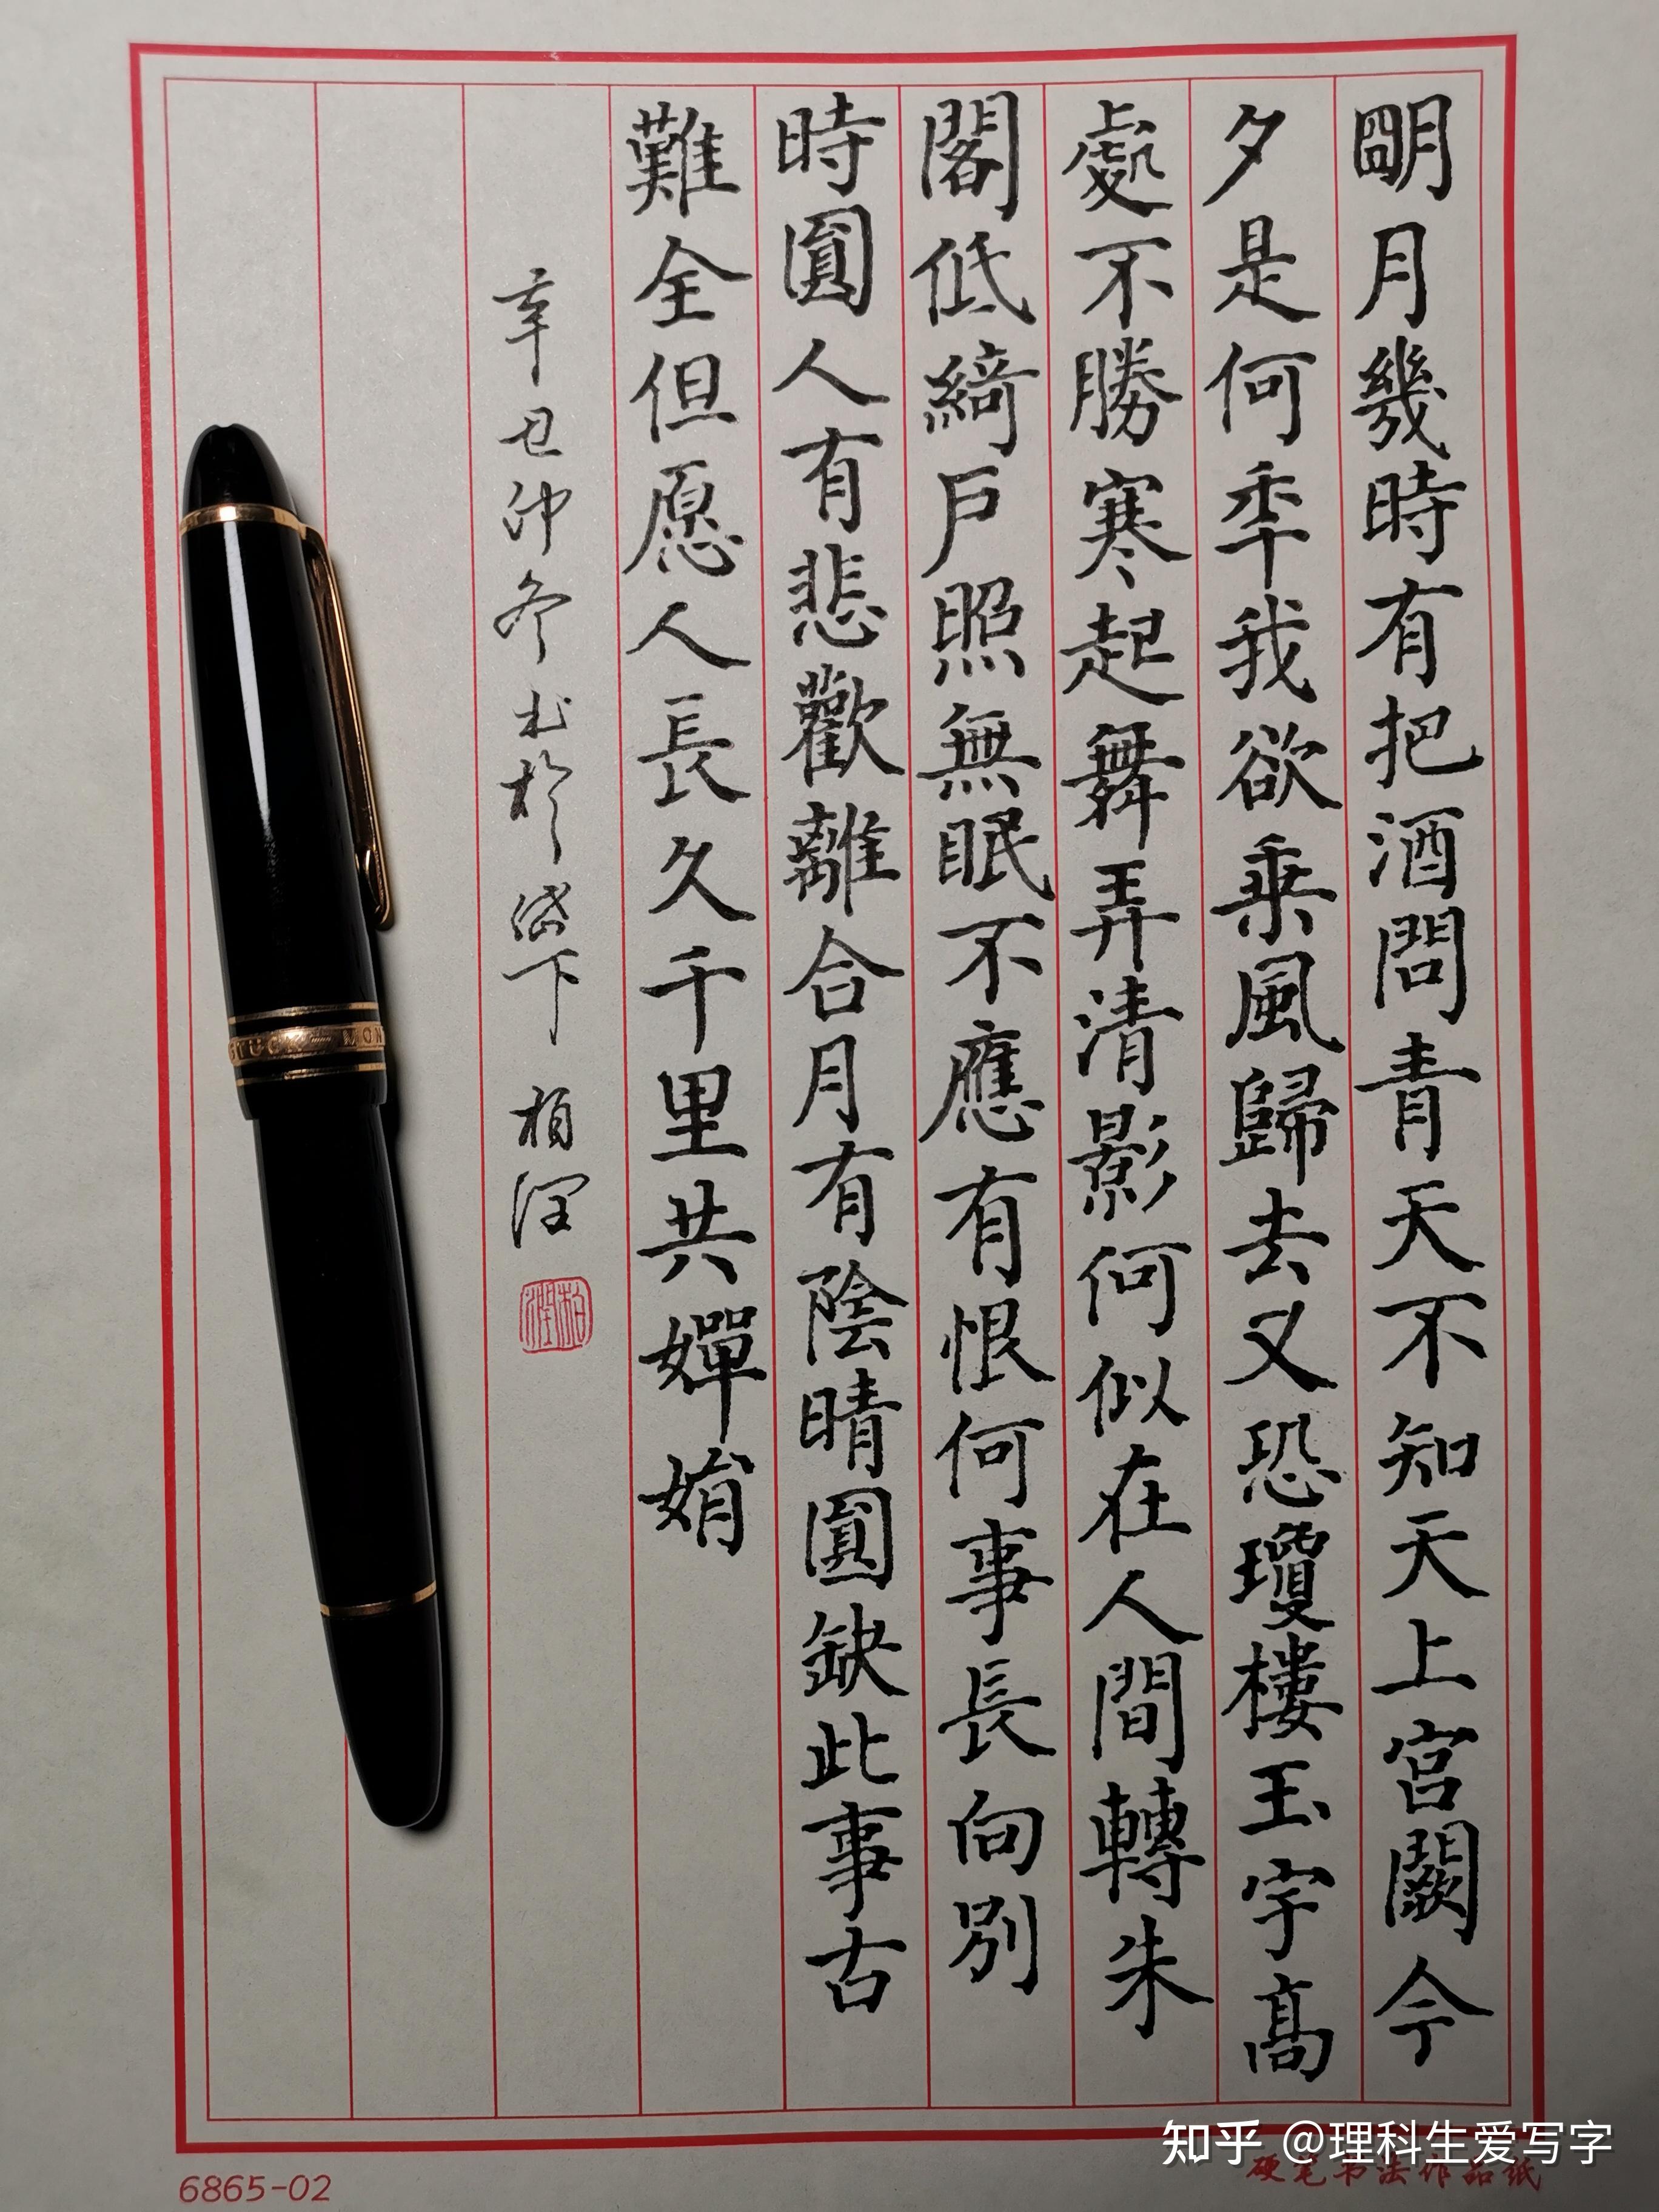 朙月幾時有把酒問青天不知天上宫闕今
夕是何秊我欲乗風歸去又恐瓊樓玉宇髙
處不勝寒起舞弄清影何似在人間轉朱
閣低綺戶照無眠不應有恨何事長向别
時圓人有悲歡離合月有陰晴圓缺此事古
難全但愿人長久千里共嬋娟
辛丑仲冬書於燈下 柏潤
柏潤
MON
6865-02
硬笔书法作品纸
知乎 @理科生爱写字